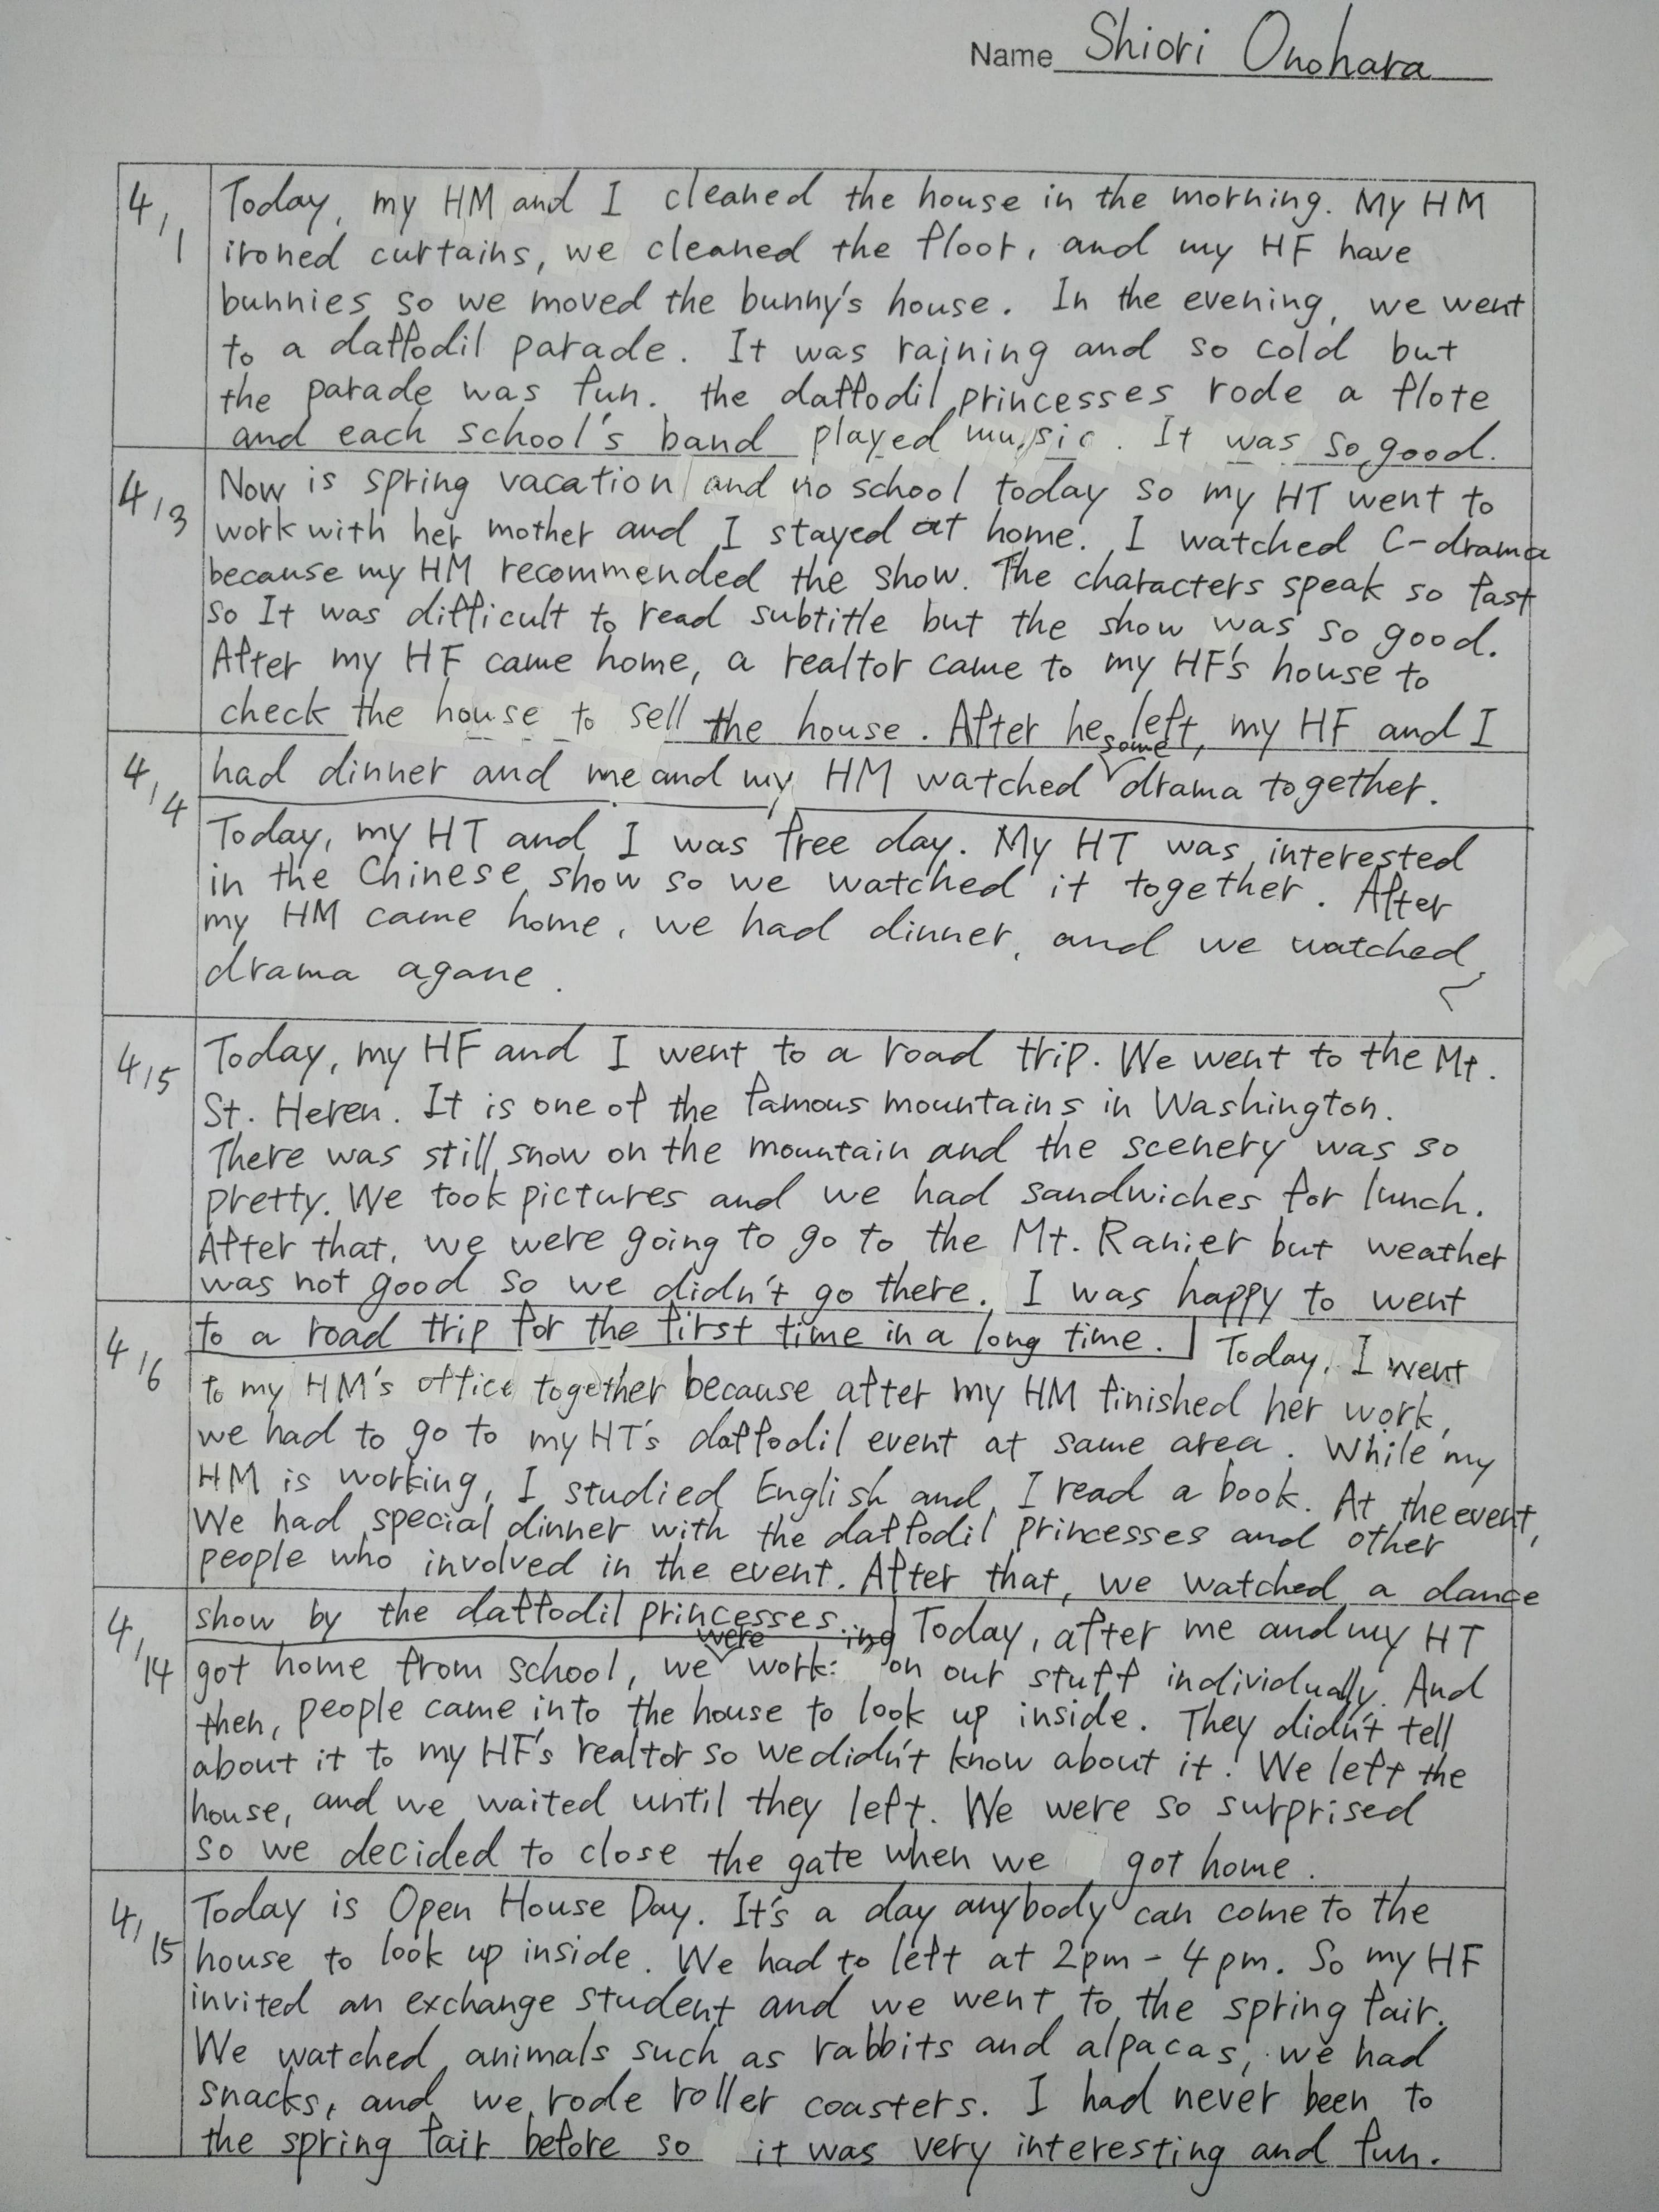 Name Shiori Onohara
4/1 Today, my HM and I cleaned the house in the morning. My HM
ironed curtains, we cleaned the floor, and my HF have
bunnies so we moved the bunny's house. In the evening, we went
to a daffodil parade. It was raining and so cold but
the parade was fun. the daffodil princesses rode a flote
and each school's band played music. It was so good.
4/3 Now is spring vacation and no school today so my HT went to
work with her mother and I stayed at home. I watched C-drama
because my HM recommended the show. The characters speak so fast
so It was difficult to read subtitle but the show was so good.
After my HF came home, a realtor came to my HF's house to
check the house to sell the house. After he left, my HF and I
had dinner and me and my HM watched some drama together.
4/4 Today, my HT and I was free day. My HT was interested
in the Chinese show so we watched it together. After
my HM came home, we had dinner, and we watched
drama agane.
4/5 Today, my HF and I went to a road trip. We went to the Mt.
St. Heren. It is one of the famous mountains in Washington.
There was still snow on the mountain and the scenery was so
pretty. We took pictures and we had sandwiches for lunch.
After that, we were going to go to the Mt. Ranier but weather
was not good so we didn't go there. I was happy to went
to a road trip for the first time in a long time.
4/6 Today, I went
to my HM's office together because after my HM finished her work,
we had to go to my HT's daffodil event at same area. While my
HM is working, I studied English and I read a book. At the event,
We had special dinner with the daffodil princesses and other
people who involved in the event. After that, we watched a dance
show by the daffodil princesses.
4/14 Today, after me and my HT
got home from school, we were working on our stuff individually. And
then, people came into the house to look up inside. They didn't tell
about it to my HF's realtor so we didn't know about it! We left the
house, and we waited until they left. We were so surprised
so we decided to close the gate when we got home.
4/15 Today is Open House Day. It's a day anybody can come to the
house to look up inside. We had to left at 2pm - 4pm. So my HF
invited an exchange student and we went to the spring fair.
We watched animals such as rabbits and alpacas, we had
snacks, and we rode roller coasters. I had never been to
the spring fair before so it was very interesting and fun.